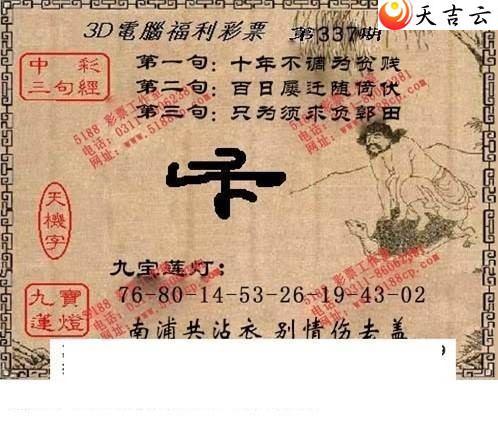 天吉云
3D電腦福利彩票 第337期
中彩
三句經
第一句：十年不调为贫贱
第二句：百日屡迁随倚伏
第三句：只为须求负郭田
5188 彩票工作室
天機字
九宝莲灯：
76-80-14-53-26-19-43-02
九寶
蓮燈
南浦共沾衣 别情伤去盖